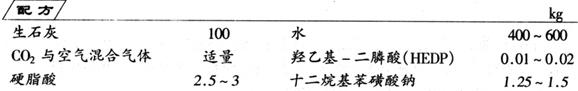 配方 kg
生石灰 100 水 400~600
CO₂与空气混合气体 适量 羟乙基-二膦酸(HEDP) 0.01~0.02
硬脂酸 2.5~3 十二烷基苯磺酸钠 1.25~1.5